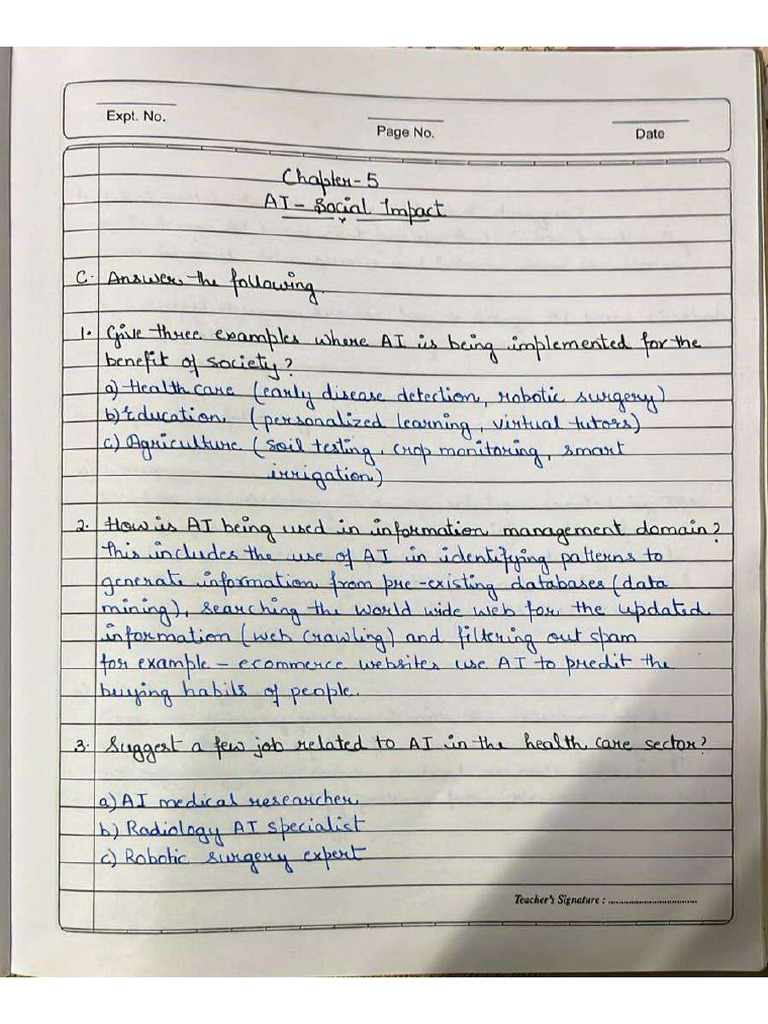 Expt. No.
Page No.
Date
Chapter-5
AI - Social Impact
C. Answer the following.
1. Give three examples where AI is being implemented for the
benefit of society?
a) Healthcare (early disease detection, robotic surgery)
b) Education (personalized learning, virtual tutors)
c) Agriculture (soil testing, crop monitoring, smart
irrigation)
2. How is AI being used in information management domain?
This includes the use of AI in identifying patterns to
generate information from pre-existing databases (data
mining), searching the world wide web for the updated
information (web crawling) and filtering out spam
for example - ecommerce websites use AI to predit the
buying habils of people.
3. Suggest a few job related to AI in the health care sector?
a) AI medical researcher
b) Radiology AI specialist
c) Robotic surgery expert
Teacher's Signature : ................................